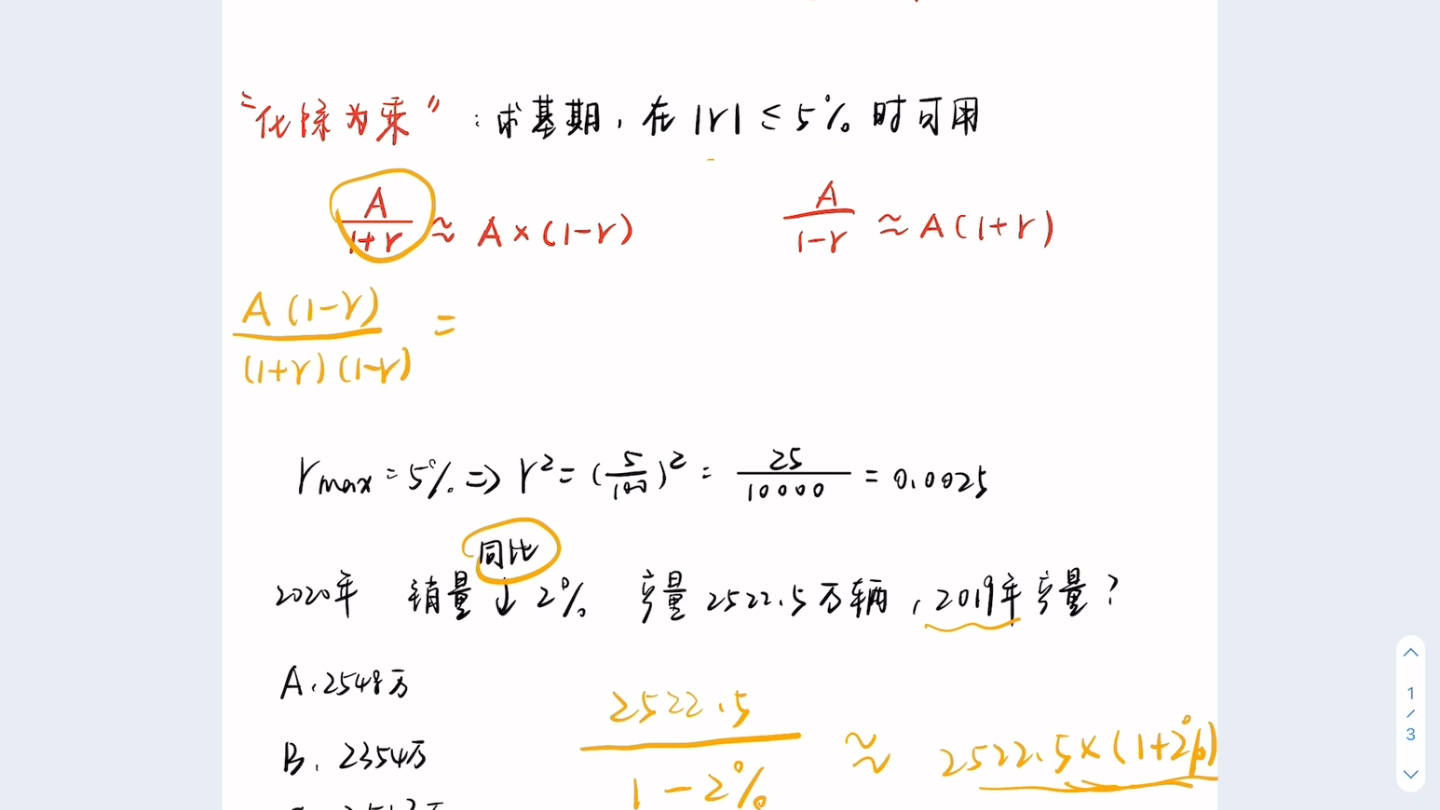 “化除为乘”：求基期，在 |r| ≤ 5% 时可用
A/(1+r) ≈ A×(1-r)    A/(1-r) ≈ A(1+r)
A(1-r)/((1+r)(1-r)) =
rmax = 5% ⇒ r² = (5/100)² = 25/10000 = 0.0025
同比
2020年 销量 ↓ 2% 产量 2522.5万辆，2019年产量？
A、2548万
2522.5/(1-2%) ≈ 2522.5×(1+2%)
B、2354万
1
/
3